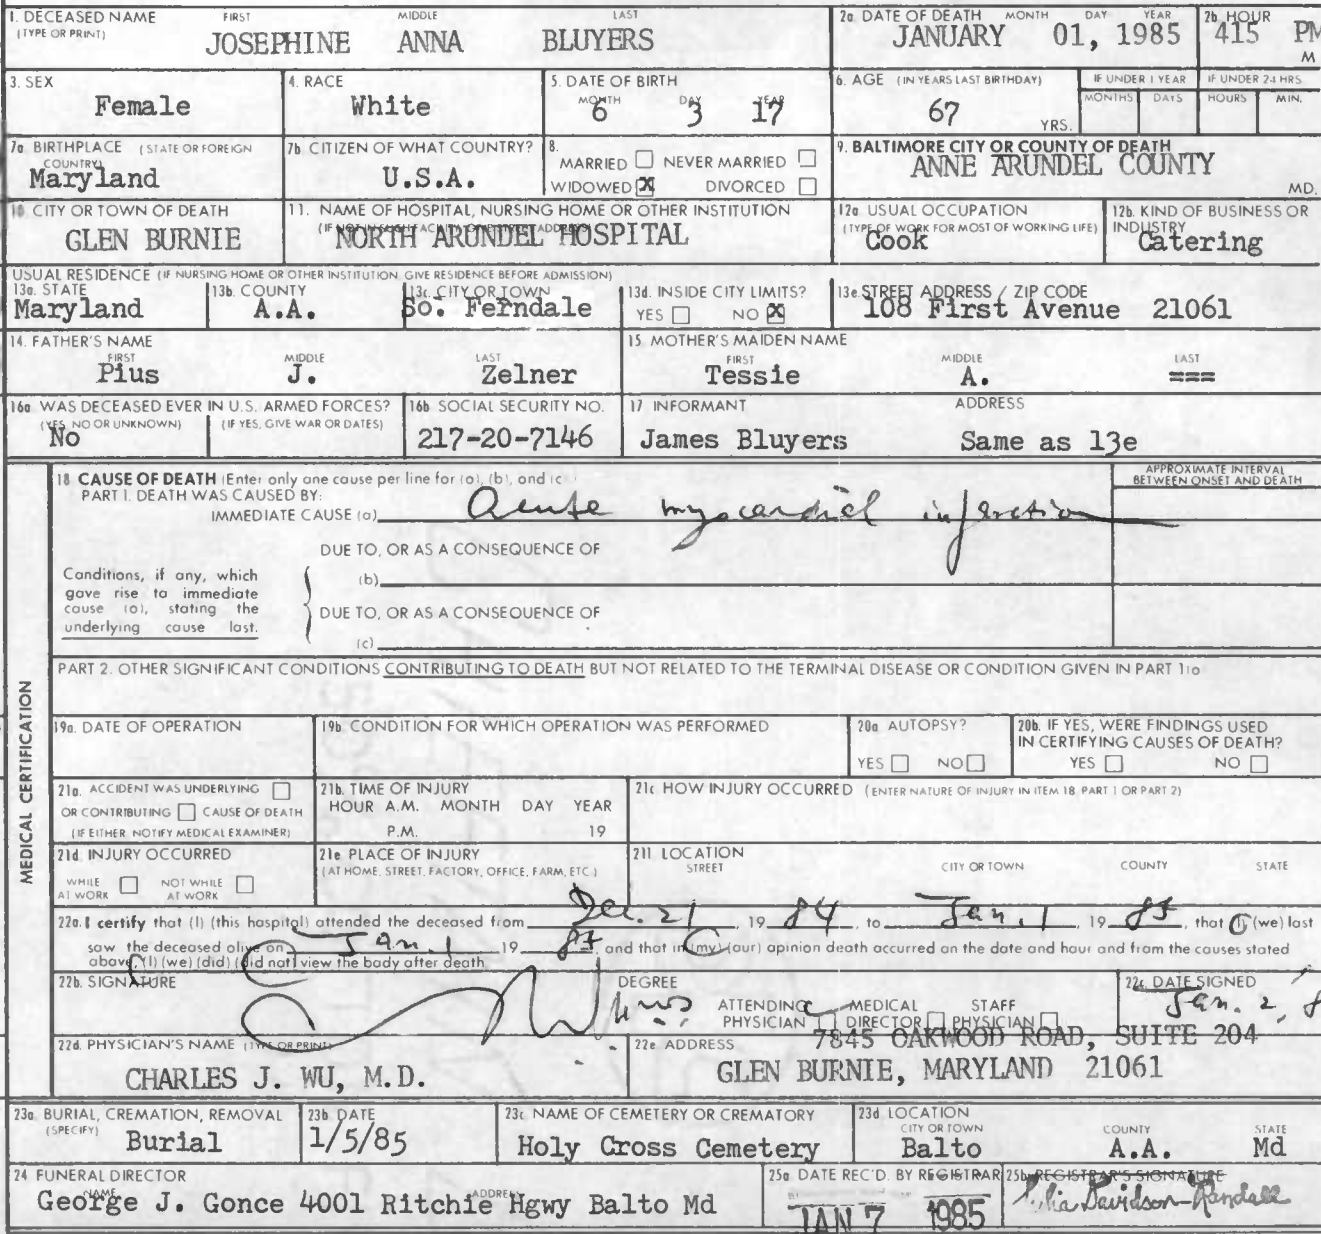 1. DECEASED NAME (TYPE OR PRINT) FIRST MIDDLE LAST
JOSEPHINE ANNA BLUYERS
2a. DATE OF DEATH MONTH DAY YEAR
JANUARY 01, 1985
2b. HOUR
415 PM
M
3. SEX
Female
4. RACE
White
5. DATE OF BIRTH
MONTH DAY YEAR
6 3 17
6. AGE (IN YEARS LAST BIRTHDAY)
67 YRS.
IF UNDER 1 YEAR
MONTHS DAYS
IF UNDER 24 HRS
HOURS MIN.
7a BIRTHPLACE (STATE OR FOREIGN COUNTRY)
Maryland
7b CITIZEN OF WHAT COUNTRY?
U.S.A.
8.
MARRIED NEVER MARRIED
WIDOWED X DIVORCED
9. BALTIMORE CITY OR COUNTY OF DEATH
ANNE ARUNDEL COUNTY
MD.
10 CITY OR TOWN OF DEATH
GLEN BURNIE
11. NAME OF HOSPITAL, NURSING HOME OR OTHER INSTITUTION
(IF NOT IN SUCH FACILITY, GIVE STREET ADDRESS)
NORTH ARUNDEL HOSPITAL
12a USUAL OCCUPATION
(TYPE OF WORK FOR MOST OF WORKING LIFE)
Cook
12b. KIND OF BUSINESS OR INDUSTRY
Catering
USUAL RESIDENCE (IF NURSING HOME OR OTHER INSTITUTION GIVE RESIDENCE BEFORE ADMISSION)
13a. STATE
Maryland
13b. COUNTY
A.A.
13c. CITY OR TOWN
So. Ferndale
13d. INSIDE CITY LIMITS?
YES NO X
13e. STREET ADDRESS / ZIP CODE
108 First Avenue 21061
14. FATHER'S NAME
FIRST MIDDLE LAST
Pius J. Zelner
15 MOTHER'S MAIDEN NAME
FIRST MIDDLE LAST
Tessie A. ===
16a WAS DECEASED EVER IN U.S. ARMED FORCES?
(YES, NO OR UNKNOWN) (IF YES, GIVE WAR OR DATES)
No
16b SOCIAL SECURITY NO.
217-20-7146
17 INFORMANT ADDRESS
James Bluyers Same as 13e
MEDICAL CERTIFICATION
18 CAUSE OF DEATH (Enter only one cause per line for (a), (b), and (c)
PART I. DEATH WAS CAUSED BY:
IMMEDIATE CAUSE (a) Acute myocardial infarction
APPROXIMATE INTERVAL BETWEEN ONSET AND DEATH
DUE TO, OR AS A CONSEQUENCE OF
(b)
Conditions, if any, which
gave rise to immediate
cause (a), stating the
underlying cause last.
DUE TO, OR AS A CONSEQUENCE OF
(c)
PART 2. OTHER SIGNIFICANT CONDITIONS CONTRIBUTING TO DEATH BUT NOT RELATED TO THE TERMINAL DISEASE OR CONDITION GIVEN IN PART 1(a
19a. DATE OF OPERATION
19b. CONDITION FOR WHICH OPERATION WAS PERFORMED
20a AUTOPSY?
YES NO
20b. IF YES, WERE FINDINGS USED
IN CERTIFYING CAUSES OF DEATH?
YES NO
21a. ACCIDENT WAS UNDERLYING
OR CONTRIBUTING CAUSE OF DEATH
(IF EITHER NOTIFY MEDICAL EXAMINER)
21b. TIME OF INJURY
HOUR A.M. MONTH DAY YEAR
P.M. 19
21c HOW INJURY OCCURRED (ENTER NATURE OF INJURY IN ITEM 18, PART 1 OR PART 2)
21d INJURY OCCURRED
WHILE AT WORK NOT WHILE AT WORK
21e PLACE OF INJURY
(AT HOME, STREET, FACTORY, OFFICE, FARM, ETC.)
21f LOCATION
STREET CITY OR TOWN COUNTY STATE
22a. I certify that (I) (this hospital) attended the deceased from Dec. 21 19 84, to Jan. 1 19 85, that (I) (we) last
saw the deceased alive on Jan. 1 19 85 and that in (my) (our) opinion death occurred on the date and hour and from the causes stated
above, (I) (we) (did) (did not) view the body after death
22b. SIGNATURE
DEGREE
ATTENDING PHYSICIAN MEDICAL DIRECTOR STAFF PHYSICIAN
22c. DATE SIGNED
Jan. 2, 8
22d. PHYSICIAN'S NAME (TYPE OR PRINT)
CHARLES J. WU, M.D.
22e ADDRESS
7845 OAKWOOD ROAD, SUITE 204
GLEN BURNIE, MARYLAND 21061
23a BURIAL, CREMATION, REMOVAL
(SPECIFY)
Burial
23b DATE
1/5/85
23c NAME OF CEMETERY OR CREMATORY
Holy Cross Cemetery
23d LOCATION
CITY OR TOWN COUNTY STATE
Balto A.A. Md
24 FUNERAL DIRECTOR
NAME ADDRESS
George J. Gonce 4001 Ritchie Hgwy Balto Md
25a DATE REC'D. BY REGISTRAR
JAN 7 1985
25b. REGISTRAR'S SIGNATURE
Davidson-Randall